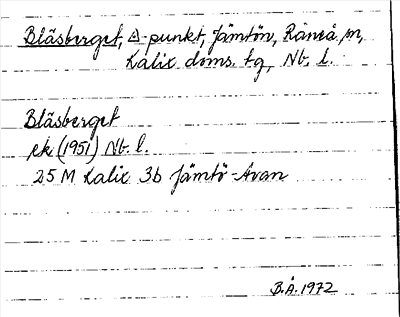 Blåsberget, △-punkt, Jämtön, Råneå sn,
Kalix doms. tg, Nb. l.
Blåsberget
ek (1951) Nb. l.
25 M Kalix 3b Jämtö-Avan
B.Å. 1972